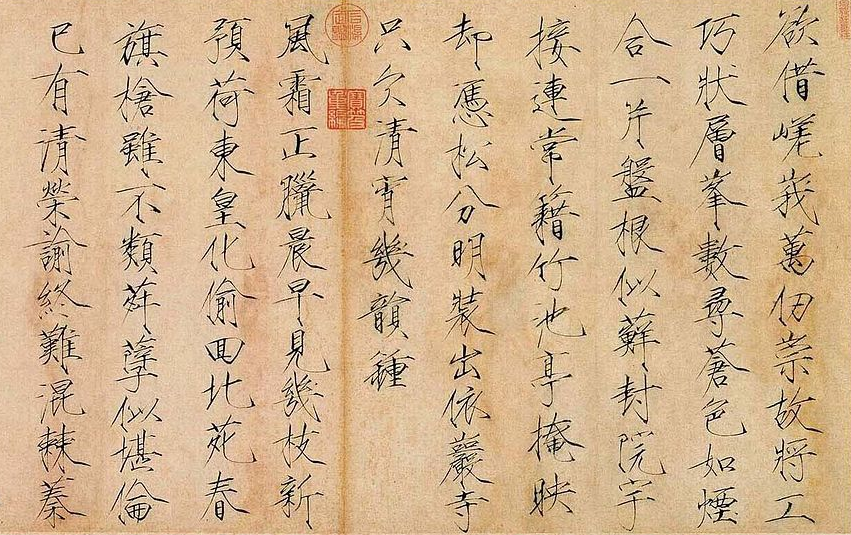 欲借嵯峨萬仞崇故將工
巧狀層峯數尋蒼色如煙
合一片盤根似蘚封院宇
接連常籍竹池亭掩映
却憑松分明裝出依巖寺
只欠清宵幾韻鍾
風霜正臘晨早見幾枝新
預荷東皇化偷回北苑春
旗槍雖不類荓孽似堪倫
已有清榮諭終難混棘蓁